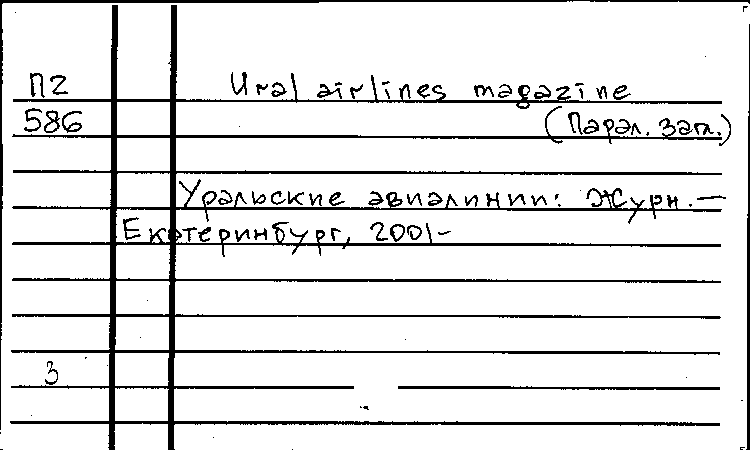 П2 Ural airlines magazine
586 (Парал. загл.)
Уральские авиалинии: Журн. —
Екатеринбург, 2001-
3